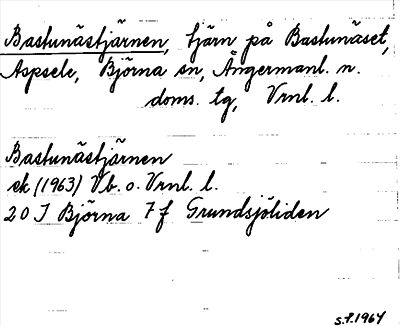 Bastunästjärnen, tjärn på Bastunäset,
Aspsele, Björna sn, Ångermanl. n.
doms. tg, Vrnl. l.
Bastunästjärnen
ek (1963) Vb. o. Vrnl. l.
20 I Björna 7 f Grundsjöliden
s.f.1964